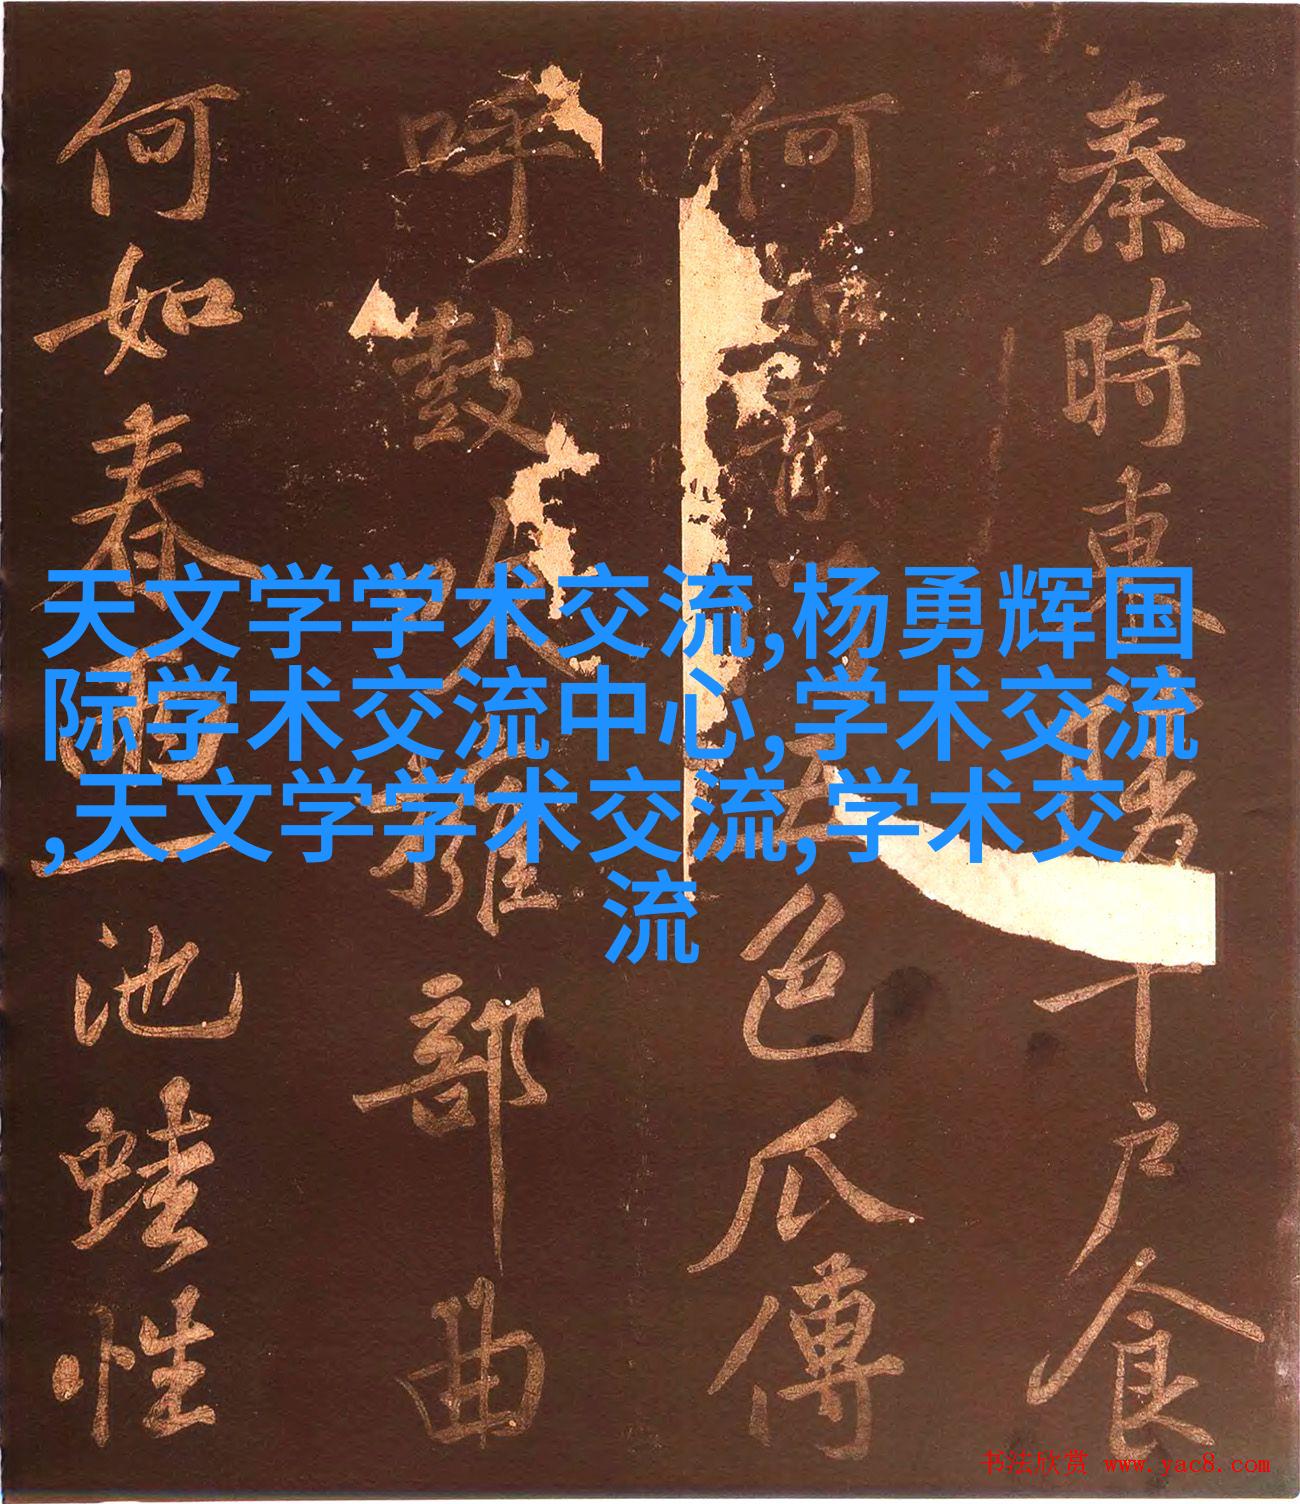 秦時東陵千戶食
何如青門五色瓜傳
呼鼓吹擁部曲
何如春雨一池蛙性
天文学学术交流,杨勇辉国
际学术交流中心,学术交流
,天文学学术交流,学术交
流
书法欣赏 www.yac8.com